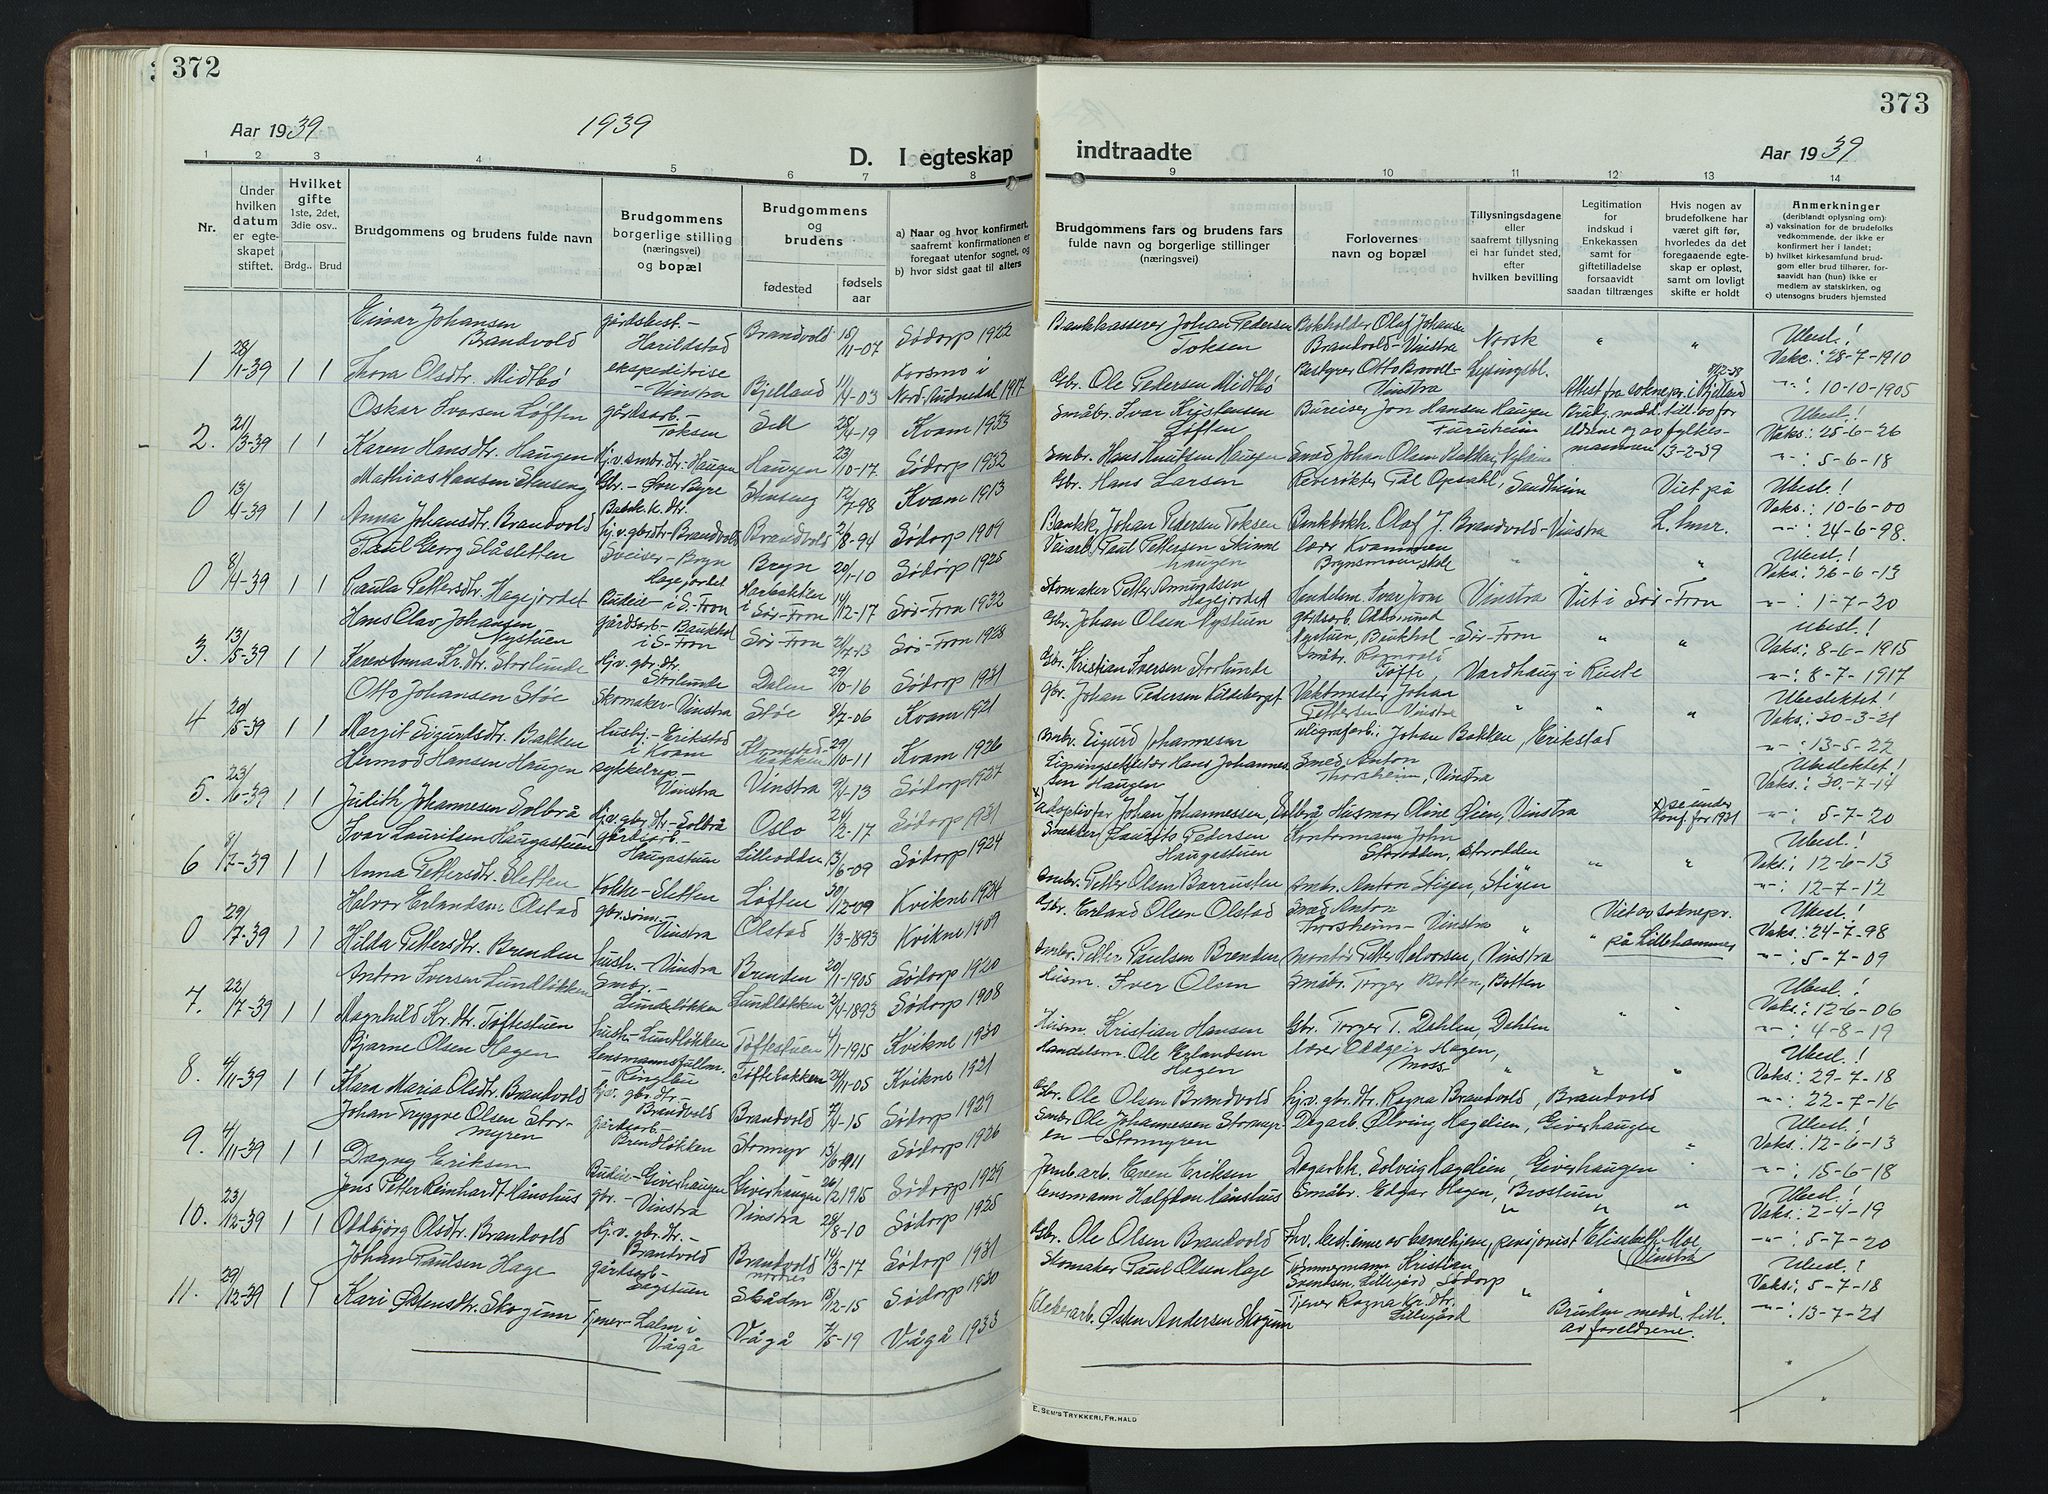 372
Aar 1939
1939
D. I egteskap
1 2 3 4 5 6 7 8
Nr.
Under hvilken datum er egteskapet stiftet.
Hvilket gifte 1ste, 2det, 3die osv..
Brdg.. Brud
Brudgommens og brudens fulde navn
Brudgommens borgerlige stilling (næringsvei) og bopæl
Brudgommens og brudens
fødested
fødsels aar
a) Naar og hvor konfirmert, saafremt konfirmationen er foregaat utenfor sognet, og
b) hvor sidst gaat til alters
Einar Johansen Brandvold gårdsbest. - Harildstad Brandvold 15/11-07 Sødorp 1922
1 28/1-39 1 1 Thora Olsdtr. Midtbö ekspeditrise - Vinstra Bjelland 11/4-03 Nord-Audnedal 1917
Oskar Ivarsen Løften gårdsarb - Toksen Sell 28/4-19 Kvam 1933
2. 21/3-39 1 1 Karen Hansdtr. Haugen Hj.v. smbr.dtr. Haugen Haugen 23/10-17 Sødorp 1932
Mathias Hansen Stenseng Gbr. - Stenseng 12/7-98 Kvam 1913
0 13/4-39 1 1 Anna Johansdtr. Brandvold hj.v. gbrdtr - Brandvold Brandvold 2/8-94 Sødorp 1909
Paul Georg Slåsletten Sveiser - Bryn Bryn 20/1-10 Sødorp 1925
0 8/4-39 1 1 Paula Pettersdtr. Hagejordet Budeie - i S.-Fron Sør-Fron 14/12-17 Sør-Fron 1932
Hans Olav Johansen Nystuen gårdsarb - Baukhol i S.-Fron Sør-Fron 2/7-13 Sør-Fron 1928
3. 13/5-39 1 1 Karen Anna Kr.dtr. Storlunde Hj.v. gbr.dtr. Storlunde Dalen 29/10-16 Sødorp 1931
Otto Johansen Støe Skomaker - Vinstra Støe 8/7-06 Kvam 1921
4 20/5-39 1 1 Margit Sigurdsdtr. Bakken husbj. - Erikstad i Kvam 29/10-11 Kvam 1926
Hermod Hansen Haugen sykkelrep. - Vinstra Vinstra 9/4-13 Sødorp 1927
5. 23/6-39 1 1 Judith Johannesen Solbrå Hj.v. gbr.dtr - Solbrå Oslo 24/2-17 Sødorp 1931
Ivar Lauritsen Haugastuen gårdsarb. - Haugastuen Lilleodden 13/6-09 Sødorp 1924
6 8/7-39 1 1 Anna Pettersdtr. Sletten Kokke - Sletten Løften 30/12-09 Kvikne 1924
Halvor Erlandsen Olstad gbr.sønn - Vinstra Olstad 1/3-1893 Kvikne 1909
0 29/7-39 1 1 Hilda Pettersdtr. Brenden hush. - Vinstra Brenden 20/1-1905 Sødorp 1920
Anton Iversen Lundløkken Småbr. - Lundeløkken Lundløkken 2/4-1893 Sødorp 1908
7. 22/7-39 1 1 Magnhild Kr.dtr. Tøftestuen hush. - Lundløkken Tøftestuen 4/1-1915 Kvikne 1930
Bjarne Olsen Hagen Lensmannsfullm. - Ringebu Tøftebakken 24/11-05 Kvikne 1921
8. 4/11-39 1 1 Klara Maria Olsdtr. Brandvold hj.v. gbr.dtr. - Brandvold Brandvold 7/4-15 Sødorp 1929
Johan Tryggve Olsen Stormyren gårdsarb - Brendløkken Stormyr 13/6-1911 Sødorp 1926
9. 4/11-39 1 1 Dagny Eriksen Budeie - Giverhaugen Giverhaugen 26/12 1915 Sødorp 1929
Jens Petter Reinhardt Hånshus gbr. - Vinstra Vinstra 28/8-10 Sødorp 1925
10. 23/12-39 1 1 Oddbjørg Olsdtr. Brandvold Hj.v. gbr.dtr. - Brandvold Brandvold 14/3-17 Sødorp 1931
Johan Paulsen Hage gårdsarb - Sagstuen 18/12-15 Sødorp 1930
11. 29/12-39 1 1 Kari Østensdtr. Skogum Tjener - Lalm i Vågå Vågå 7/5-19 Vågå 1933
373
indtraadte
Aar 1939
9 10 11 12 13 14
Brudgommens fars og brudens fars fulde navn og borgerlige stillinger (næringsvei)
Forlovernes navn og bopæl
Tillysningsdagene eller saafremt tillysning ei har fundet sted, efter hvilken bevilling
Legitimation for indskud i Enkekassen samt for giftetilladelse forsaavidt saadan tiltrænges
Hvis nogen av brudefolkene har været gift før, hvorledes da det foregaaende egteskap er opløst, samt om lovligt skifte er holdt
Anmerkninger (deriblandt oplysning om):
a) vaksination for de brudefolks vedkommende, der ikke er konfirmert her i landet;
b) hvilket kirkesamfund brudgom eller brud tilhører, forsaavidt han (hun) ikke er medlem av statskirken, og
c) utensogns bruders hjemsted
Bankkasserer Johan Pedersen Toksen Bokholder Olaf Johansen Brandvold - Vinstra Norsk " " Ubesl.! Vaks: 28-7-1910
Gbr. Ole Pedersen Midtbö Bestyrer Otto - Vinstra Lysingsbl. Attest fra soknepr. i Bjelland " : 10-10-1905
Småbr. Ivar Kristensen Løften Bureiser Jon Hansen Haugen Furuheim Brudg. medd. till. av foreldrene og av fylkesmannen 13-2-39 Ubesl.! Vaks: 25-6-26
Smbr. Hans Knutsen Haugen Smed Johan Olsen " : 5-6-18
Gbr. Hans Larsen Reverøkter Pål Opsahl, Sandheim Viet på Ubesl.! Vaks.: 10-6-00
Bankk. Johan Pedersen Toksen Bankbokh. Olaf J. Brandvold - Vinstra L.hmr. " : 24-6-98.
Veiarb. Paul Pettersen Skinnehaugen lærer Kvammen Brynsmoen skole " " " Ubesl.! Vaks.: 26-6-13
Skomaker Petter Amundsen Hagejordet Vinstra Viet i Sør-Fron " : 1-7-20
Gbr. Johan Olsen Nystuen gårdsarb. Nystuen, Baukhol - Sør-Fron " " Ubesl.! Vaks: 8-6-1915
Gbr. Kristian Iversen Storlunde Småbr. Romvold Tofte Vardhaug i Ruste " : 8-7-1917
Gbr. Johan Pedersen Kildeberget Vaktmester Johan Pettersen - Vinstra " " " Ubeslektet! Vaks: 30-3-21
Smbr. Sigurd Johannesen Johan Bakken, Erikstad " : 13-5-22
Ligningssekretær Hans Johannessen Haugen Smed Anton Thorsheim, Vinstra Ubeslektet! Vaks: 30-7-14
x) adoptivfar Johan Johannessen Solbrå Husmor Oline Øien, Vinstra x) se under konf. for 1931 " : 5-7-20
Snekker Laurits Pedersen Haugastuen Kontormann John Storodden, Storodden " " Ubesl.! Vaks: 12-6-13
Småbr. Petter Olsen Barrusten Småbr. Anton Stigen, Stigen " : 12-7-12
Gbr. Erland Olsen Olstad Smed Anton Thorsheim - Vinstra " Viet av soknepr. på Lillehammer Ubesl.! Vaks.: 24-7-98
Småbr. Petter Paulsen Brenden montør Petter Halvorsen, Vinstra " : 5-7-09
Husm. Iver Olsen Småbr. Torger Botten, Botten " " Ubesl.! Vaks: 12-6-06
Husm. Kristian Hansen Gbr. Torger T. Dahlen, Dahlen " : 4-8-19
Handelsm. Ole Erlandsen Hagen lærer Oddgeir Hagen, Moss " " " Ubesl.! Vaks.: 29-7-18
Gbr. Ole Olsen Brandvold hj.v. gbr.dtr. Ragna Brandvold, Brandvold " : 22-7-16
Smbr. Ole Johannessen Stormyren - Stormyren Dagarb. Ølving Hagelien, Giverhaugen " Ubesl.! Vaks: 12-6-13
Jernb.arb. Even Eriksen Dagarbh. Solveig Hagelien, Giverhaugen " : 15-6-18
Lensmann Halfdan Hånshus Småbr. Edgar Hagen, Brostuen " " " Ubesl.! Vaks: 2-4-19
Gbr. Ole Olsen Brandvold Fhv. bestinne av barnehjem, pensjonist Elisabeth Moe (Vinstra) " : 5-7-20
Skomaker Paul Olsen Hage Tømmermann Kristian Svendsen, Lillegård Sødorp " " " Ubesl.! Vaks: 5-7-18
arb. Østen Andersen Skogum Tjener Ragna Kr.dtr. Lillegård Bruden medd. till. av foreldrene. " : 13-7-21
E. SEM'S TRYKKERI, FR. HALD